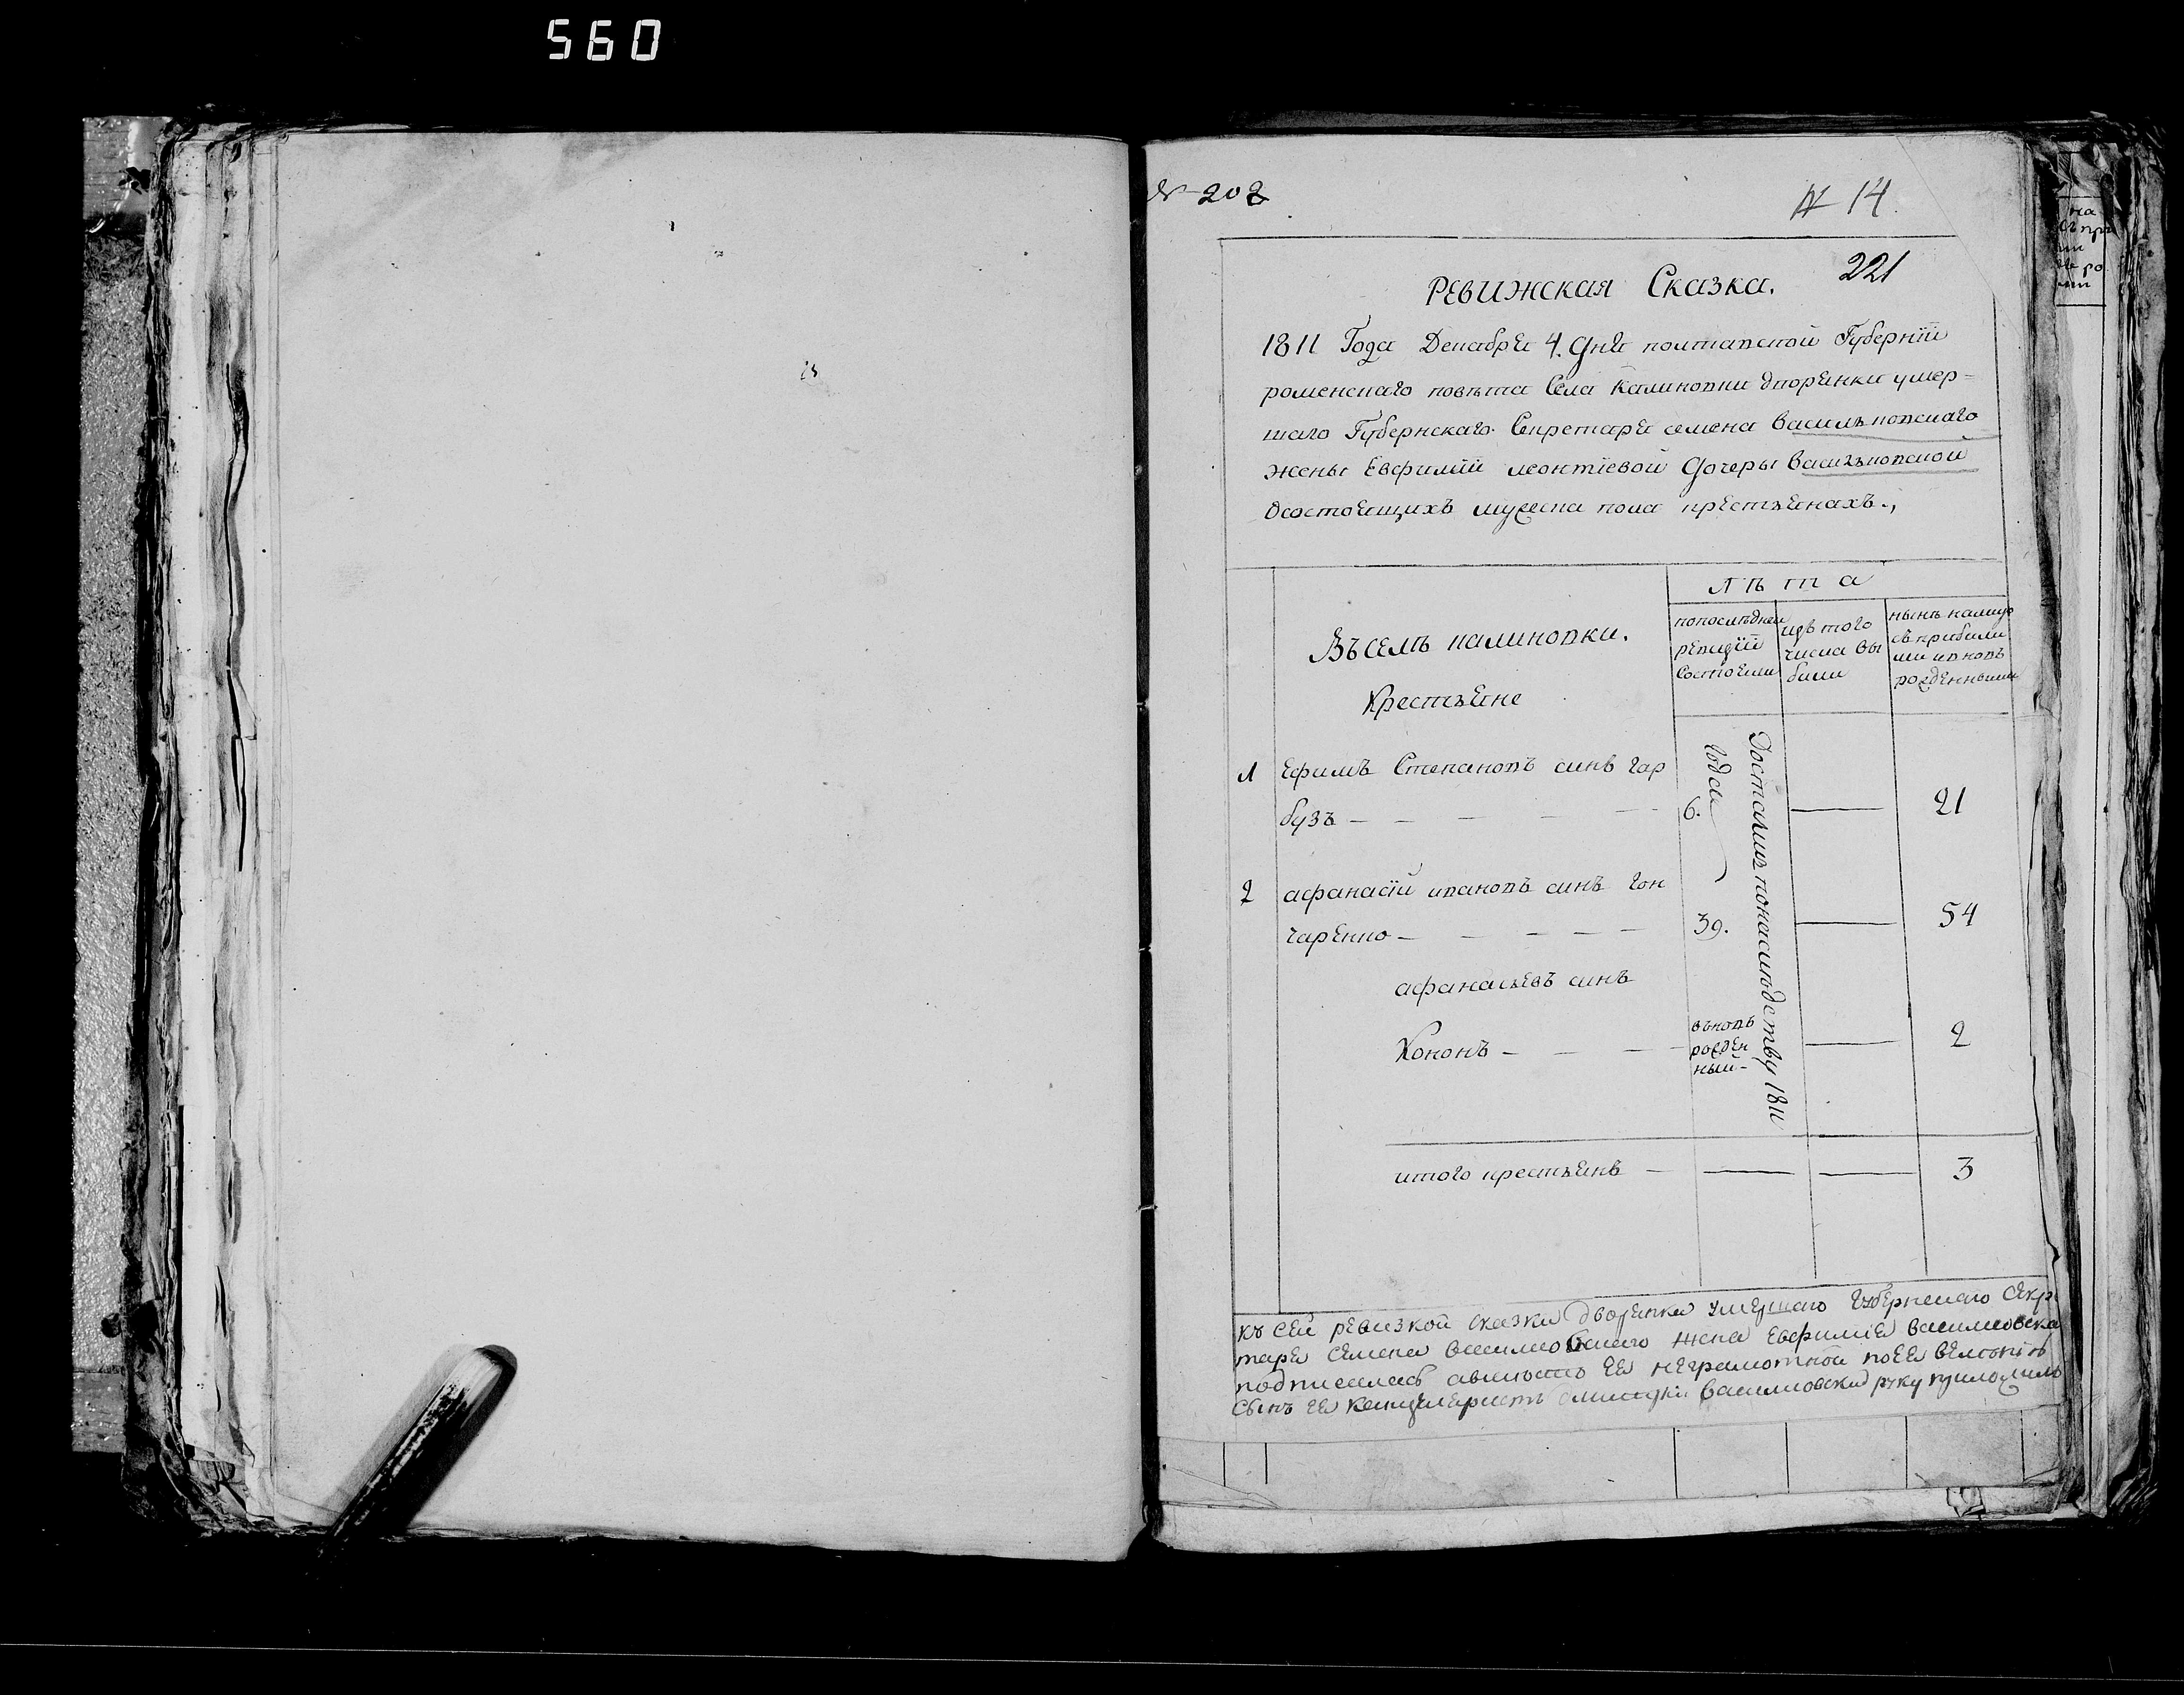 560
№ 202
№ 14.
221
Ревижская Сказка.
1811 Года Декабря 4. дня полтавской Губернїй
роменскаго повѣта Села Калиновки дворянки умер=
шаго Губернскаго Секретаря семена Васильковскаго
жены Евфимїй леонтїевой дочеры Васильковской
о состоящихъ мужеска пола крестьянахъ.,
Лѣта
Въ селѣ калиновки.
Крестьяне
по последней
ревизїй
состояли
изъ того
числа вы
были
нынѣ налицо
съ прибили
ми и вновь
рожденными
1 Ефимъ Степановъ синъ гар
бузъ — 6. — 21
2 афанасїй ивановъ синъ гон
чаренко — 39. — 54
афанасьевъ синъ
Кононъ — вновь
рожден
ный — — 2
Достались по наследству 1811
года
итого крестьянъ — — — 3
къ сей ревизкой сказки дворянка умершаго Губернскаго Секре
таря Семена Василковскаго жена Евфимия Василковска
подписалась а вместо ее неграмотной по ее велению
сынъ ее канцеляристъ Василковски руку приложилъ